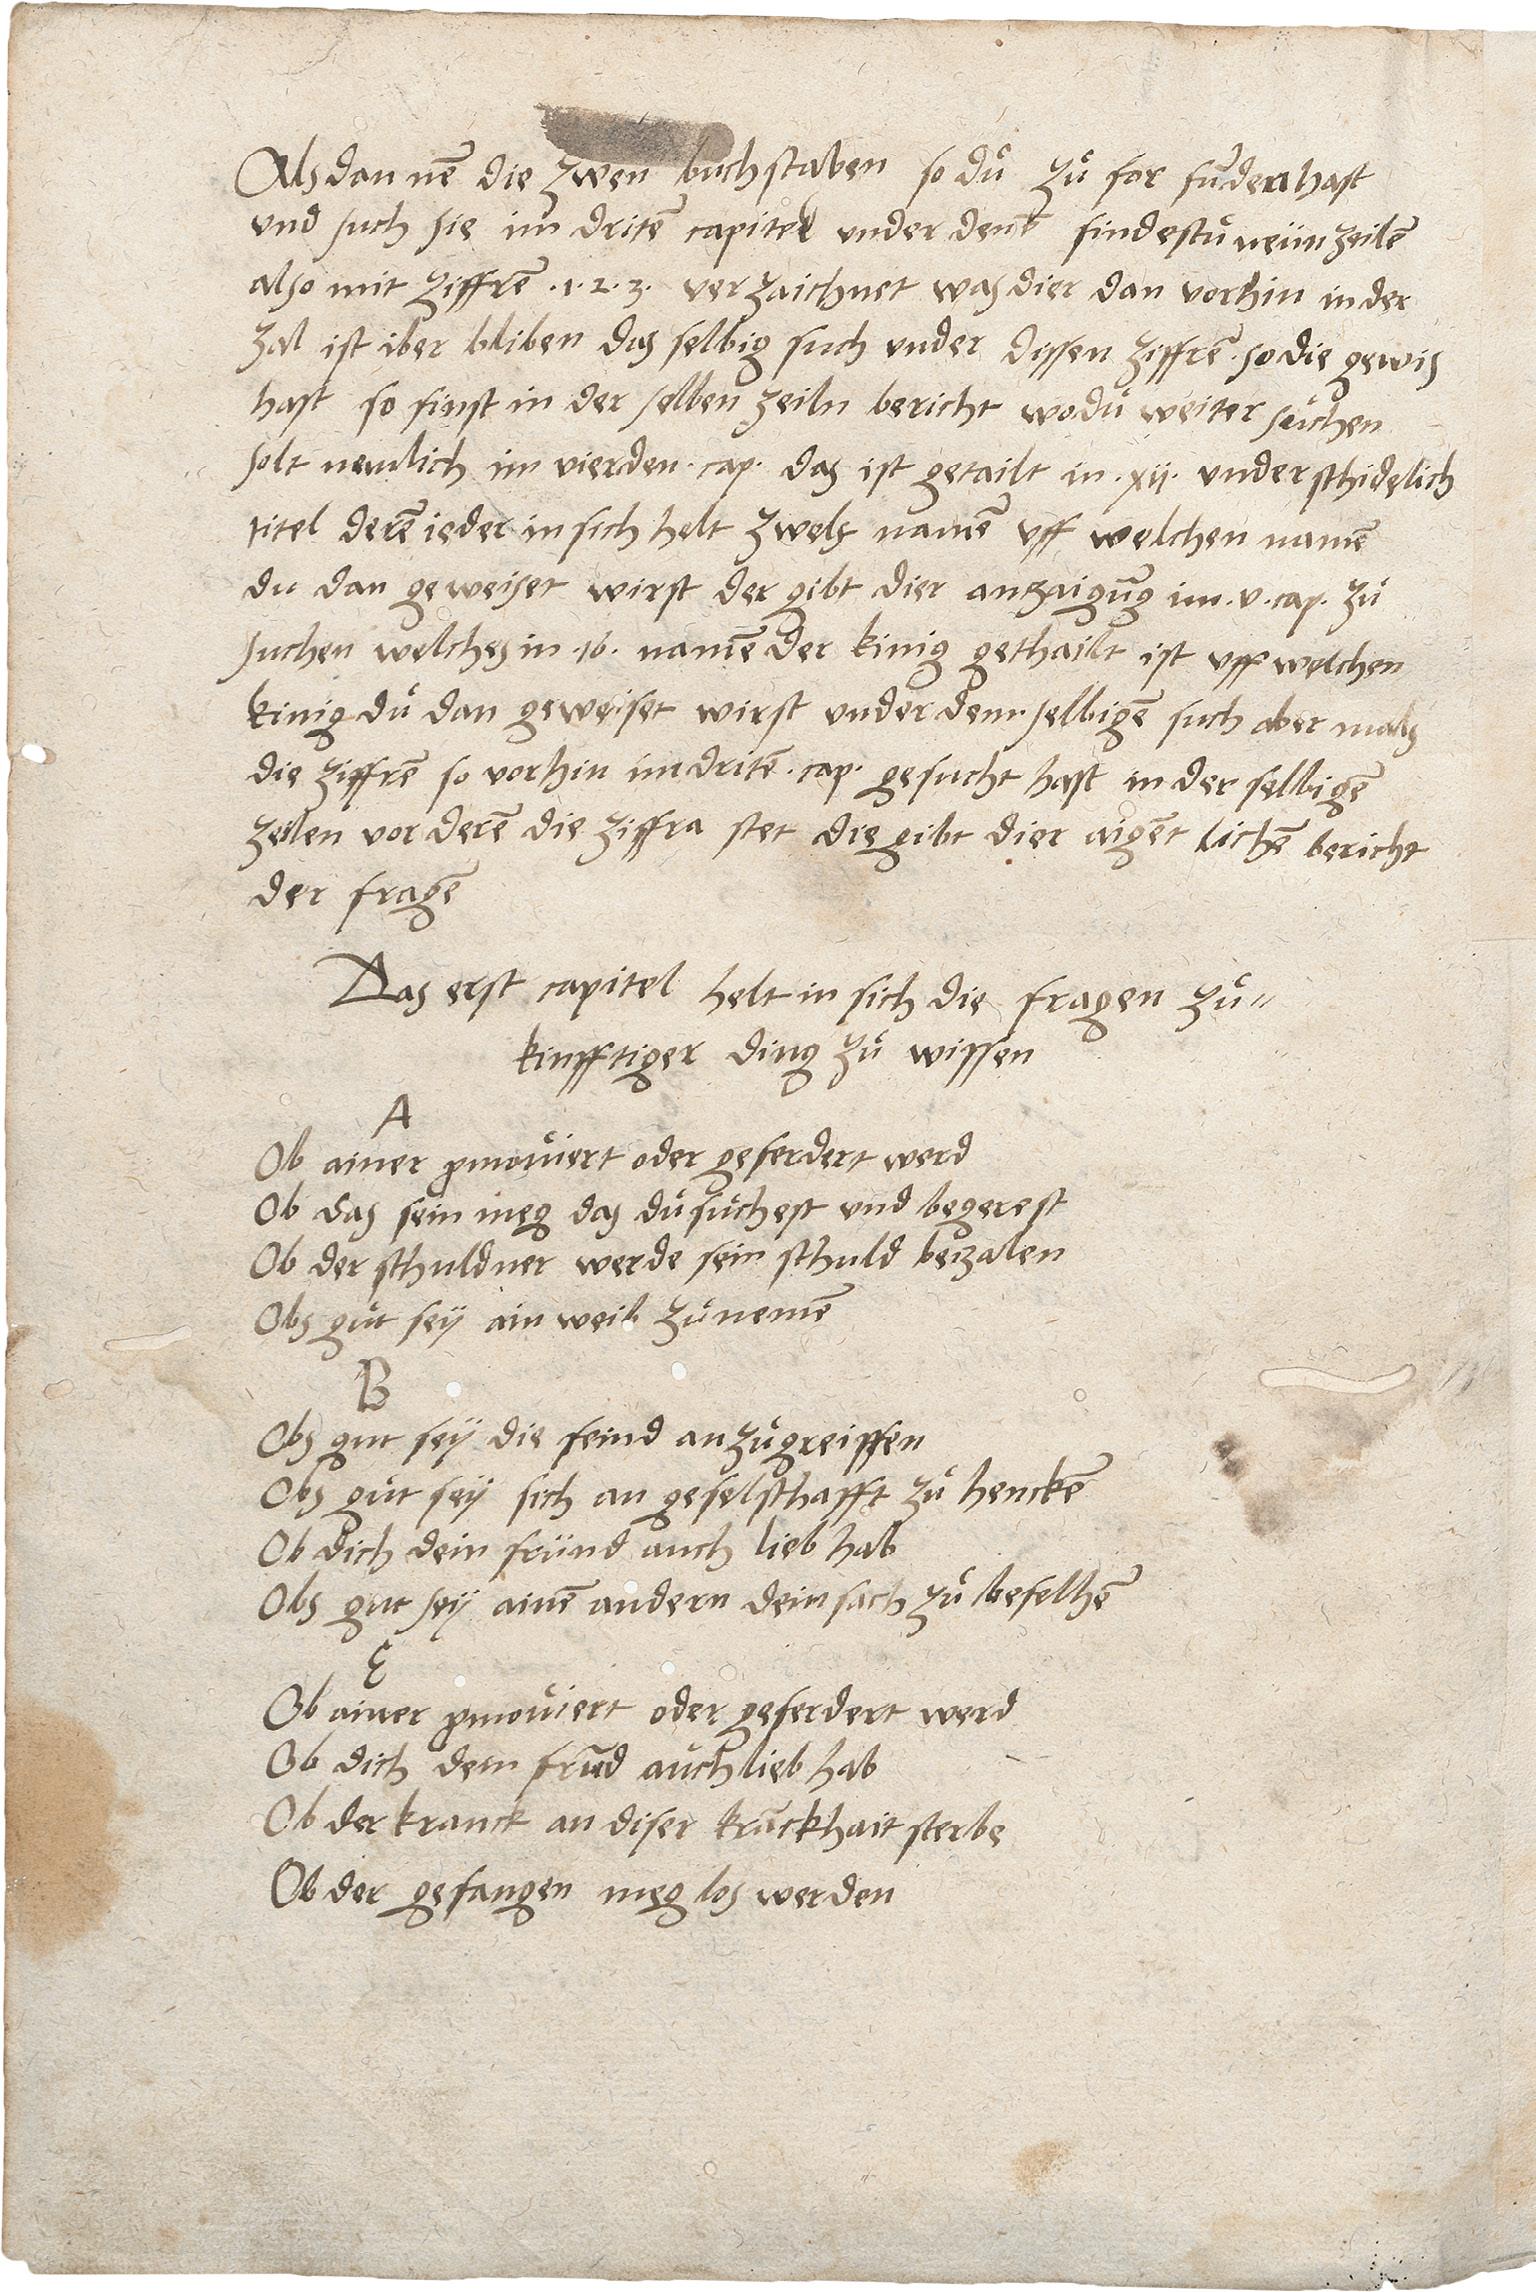 Als dan nē die zwen buchstaben so dů zů for fūden hast
und such sie im dritē capitel under den findestu neün zeilē
also mit ziffrē .1.2.3. verzaichnet was dier dan vorhin in der
zal ist iber bliben das selbig such under dissen ziffrē so die gewis
hast so finst in der selben zeiln bericht wo dů weiter sůchen
solt nemlich im vierden cap. das ist getailt in .xij. underschidelich
titel derē ieder in sich helt zwelf namē uff welchen namē
du dan geweiset wirst der gibt dier anzaigūg im .v. cap. zů
suchen welches in .16. namē der kinig gethailt ist uff welchen
kinig dů dan geweiset wirst under dem selbigē such aber mals
die ziffrē so vorhin im dritē cap. gesucht hast in der selbigē
zeilen vor derē die ziffra stet die gibt dier aigēt lichē bericht
der fragē
Das erst capitel helt in sich die fragen zů=
kinfftiger ding zů wissen
A
Ob ainer pmoviert oder geferdert werd
Ob das sein meg das dů sůchest und begerest
Ob der schuldner werde sein schuld bezalen
Obs gůt seÿ ain weib zů nemē
B
Obs gut seÿ die feind anzůgreiffen
Obs gůt seÿ sich an geselschafft zů henckē
Ob dich dein fründ auch lieb hab
Obs gut seÿ ainē andern dein sach zů befelhē
C
Ob ainer pmoviert oder geferdert werd
Ob dich dein frūd auch lieb hab
Ob der kranck an diser krāckhait sterbe
Ob der gefangen meg los werden